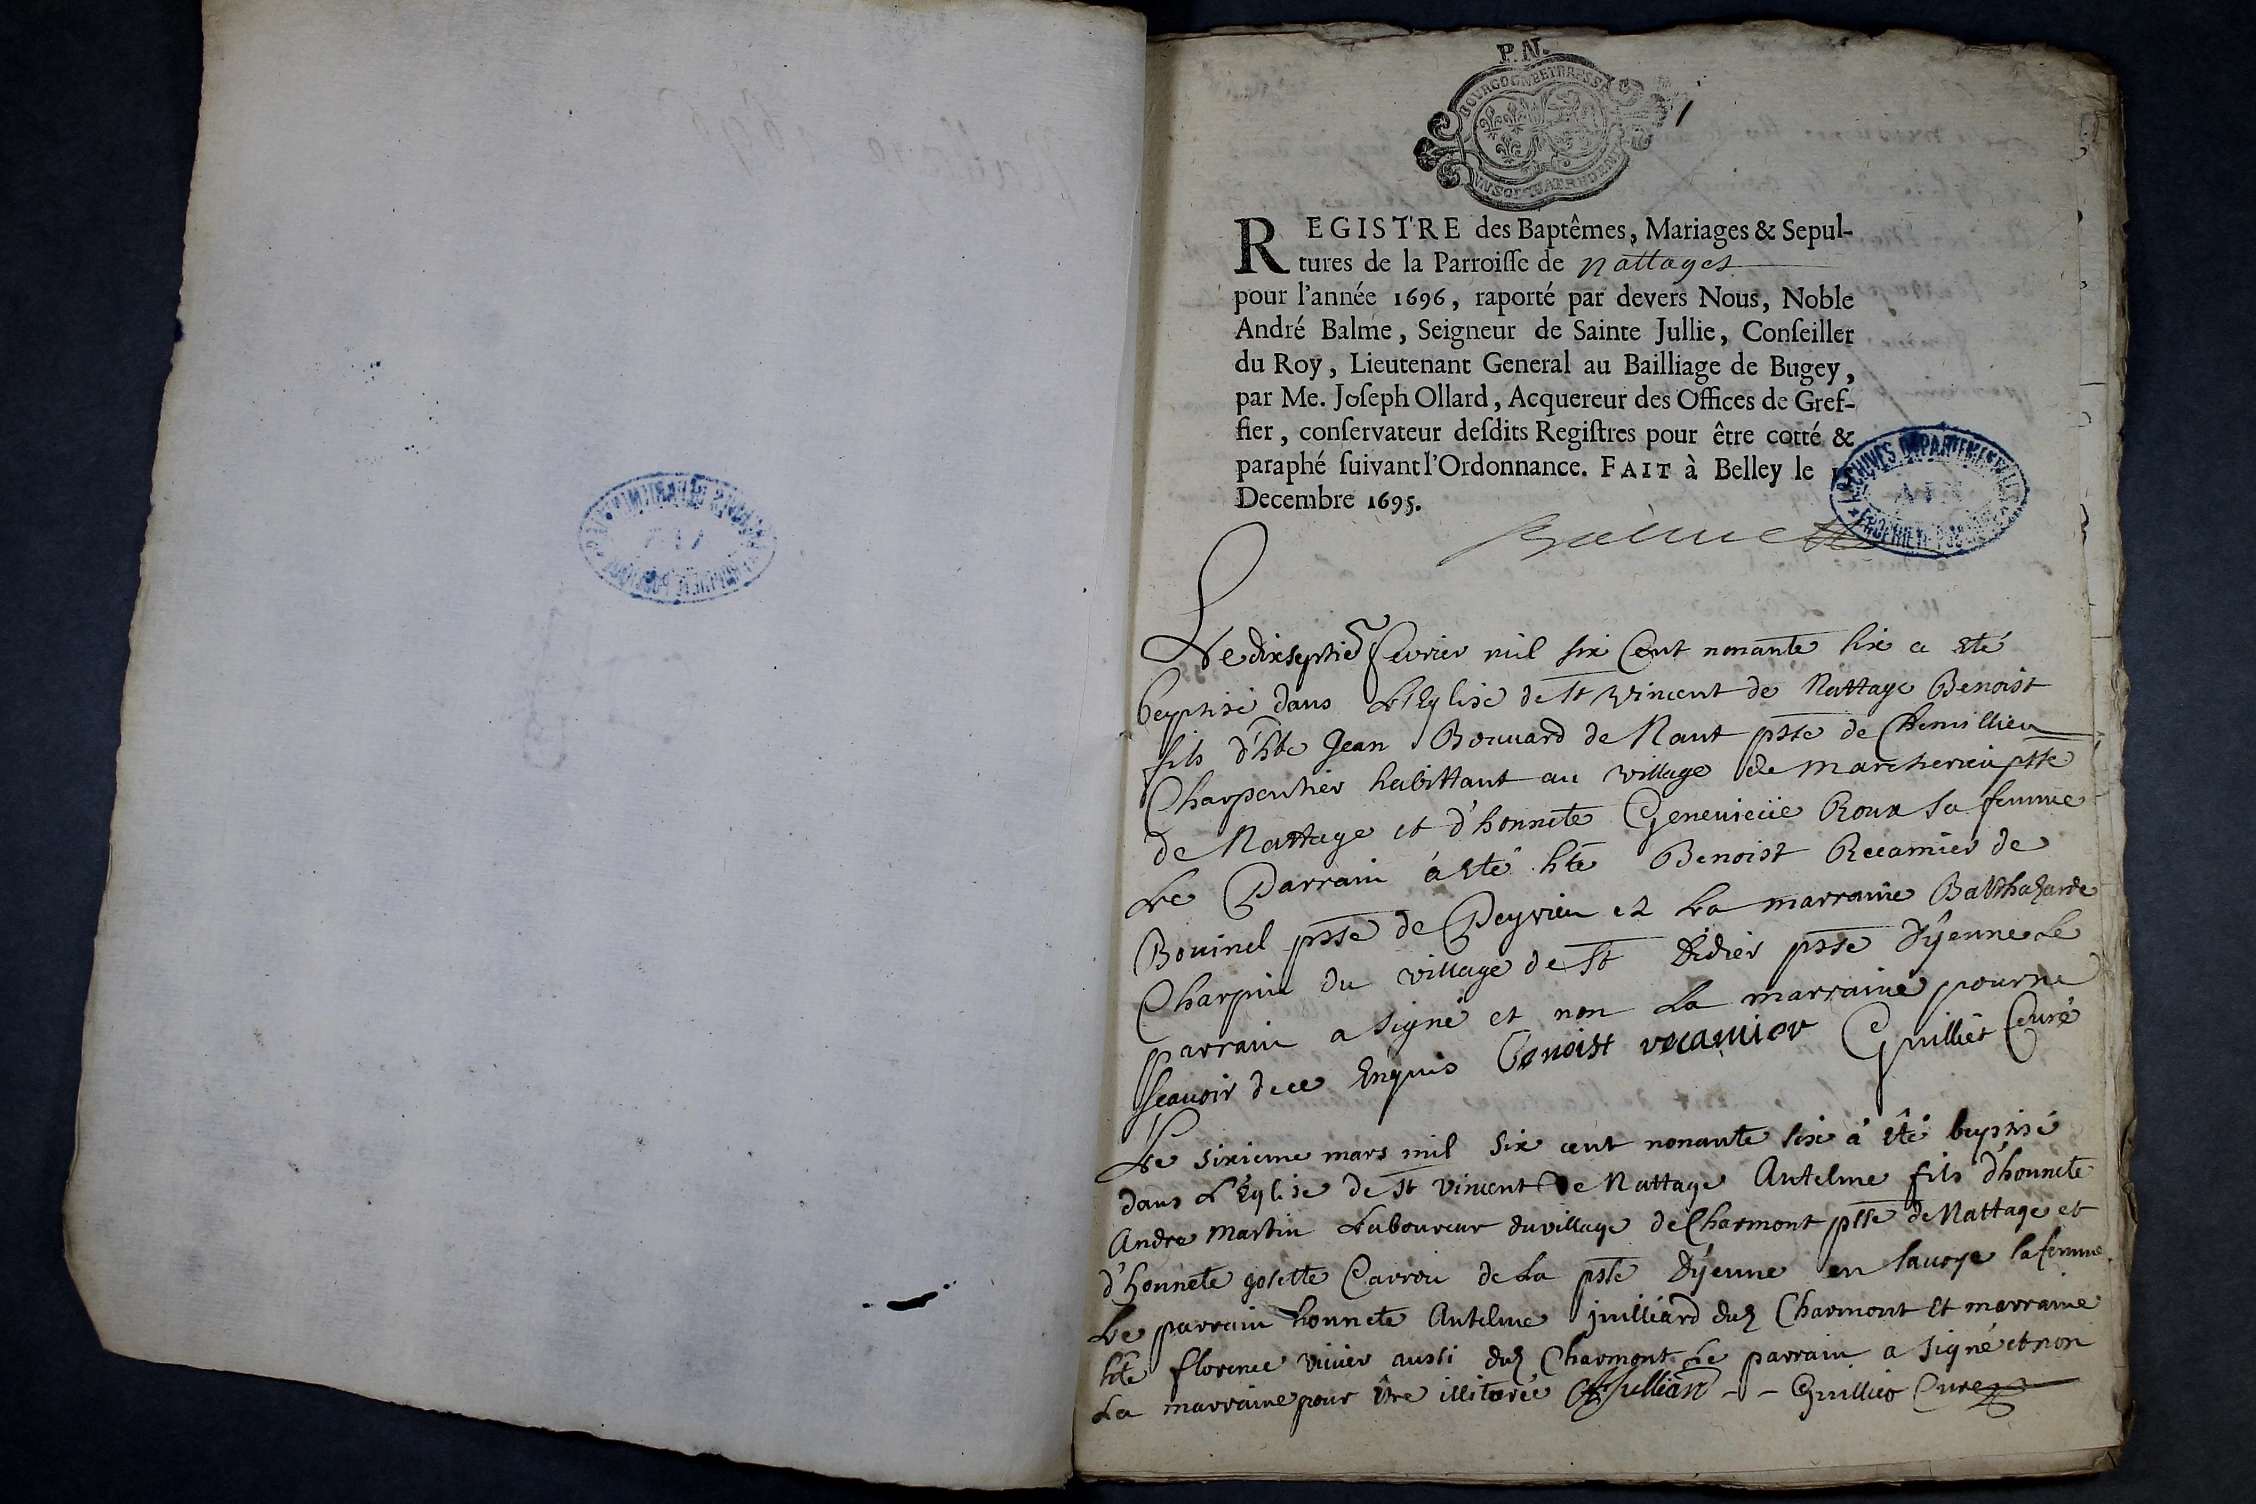 P. N.
BOURGOGNE ET BRESSE
1
REGISTRE des Baptêmes, Mariages & Sepul-
tures de la Parroisse de Nattages
pour l'année 1696, raporté par devers Nous, Noble
André Balme, Seigneur de Sainte Jullie, Conseiller
du Roy, Lieutenant General au Bailliage de Bugey,
par Me. Joseph Ollard, Acquereur des Offices de Gref-
fier, conservateur desdits Registres pour être cotté &
paraphé suivant l'Ordonnance. FAIT à Belley le
Decembre 1695.
ARCHIVES DEPARTEMENTALES
AIN
PROPRIETE PUBLIQUE
Balme
Le dixseptie fevrier mil six Cent nonante six a eté
baptisé dans L'Eglise de St Vincent de Nattage Benoist
fils d'hte Jean Bouuard de Nant psse de Chemillieu
Charpentier habittant au village de marcherieu psse
de Nattage et d'honnete Geneuieue Roux sa femme
Le Parrain á eté hte Benoist Recamier de
Bouinel psse de Peyrieu et La marraine Balthazarde
Charpin du village de St Didier psse d'yenne Le
parrain a signé et non La marraine pour ne
scauoir de ce Enquis Benoist recamier Guilliet Curé
Le sixieme mars mil six cent nonante six á eté baptisé
dans L'Eglise de St Vincent de Nattage Antelme fils d'honnete
Andre Martin Laboureur du village de Charmont psse de Nattage et
d'honnete Josette Carron de La psse d'yenne en Sauoye sa femme
Le parrain honnete Antelme juilliard dud Charmont et marraine
hte florence viuier aussi dud Charmont Le parrain a signé et non
La marraine pour être illiterée A Jullian -- Guilliet Curé